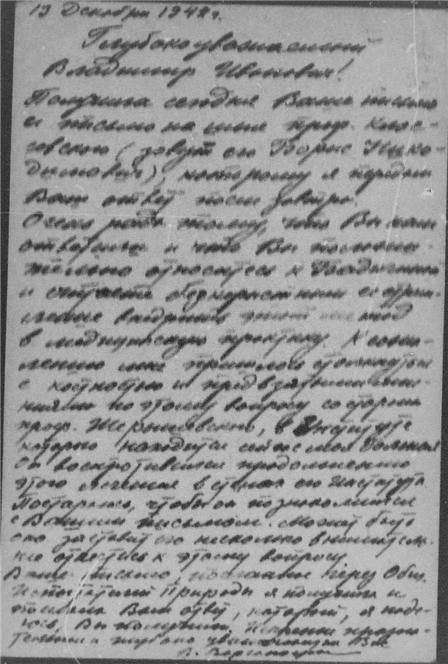 13 Декабря 1942 г.
Глубокоуважаемый
Владимир Иванович!
Получила сегодня Ваше письмо
и письмо на имя проф.
(зовут его Борис Нико-
димович), которому я передам
Ваш ответ после завтра.
Очень рада тому, что Вы нам
ответили и что Вы положи-
тельно относитесь к
и считаете бескорыстным её стрем-
ление внедрить этот метод
в медицинскую практику. К сожа-
лению мне пришлось столкнуться
с костностью и предвзятыми мне-
ниями по этому вопросу со стороны
проф. в Институте
которого находится сейчас моя больная
Он воспротивился продолжению
этого лечения в стенах его Института.
Постараюсь, чтобы он познакомился
с Вашим письмом. Может быть
это заставит его несколько внимательн-
ее отнестись к этому вопросу
Ваше письмо, посланное через Общ.
Испытателей Природы я получила и
послала Вам ответ, который, я наде-
юсь, Вы получили. Искренне
и глубоко уважающая Вас